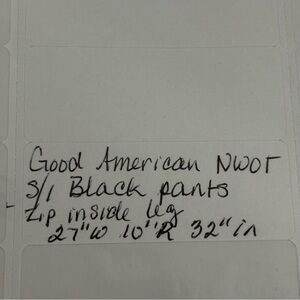 Good American NWOT
S/1 Black pants
Zip inside leg
27"W 10"R 32" in